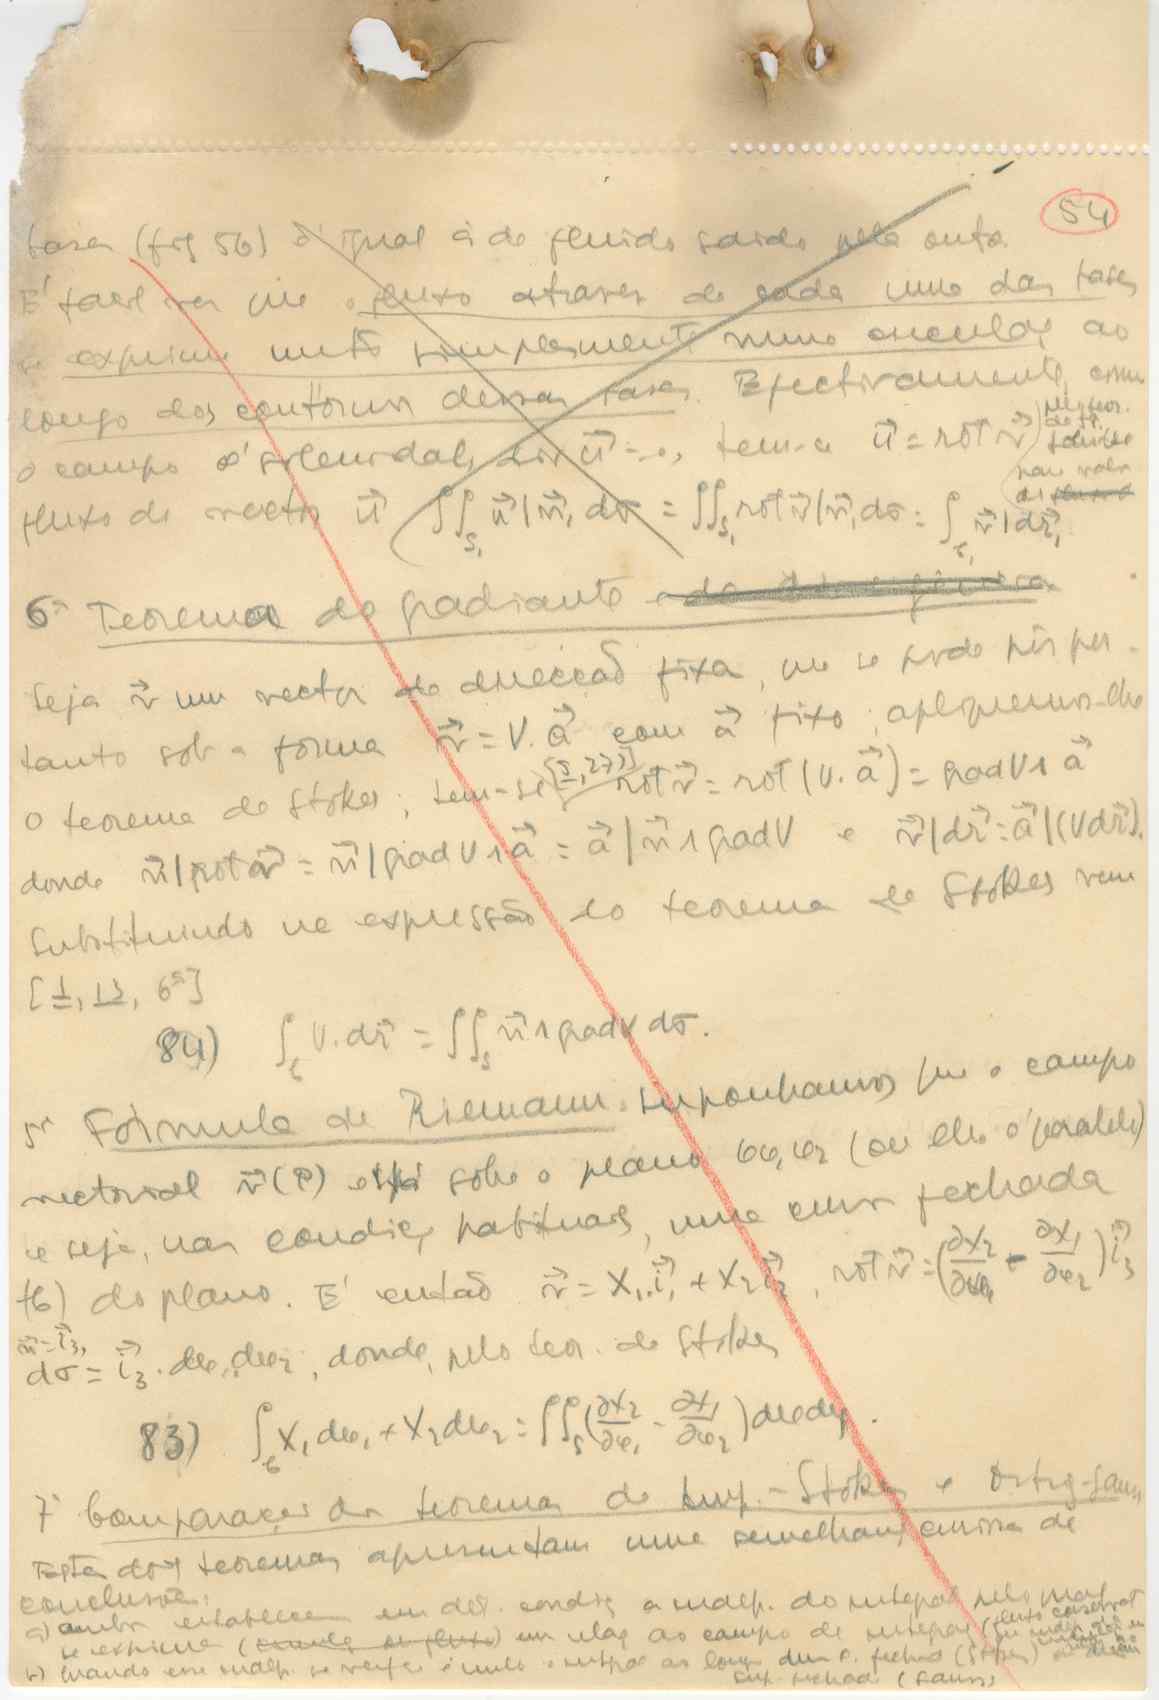 54
base (fig 56) é igual à do fluido saido pela outa.
É facil ver que o fluxo atraves de cada uma das bases
se exprime muito simplesmente numa circulação ao
longo dos contornos dessas bases. Efectivamente, como
o campo é solenoidal, div u⃗ = 0, tem-se u⃗ = rot v⃗
pelo teor. de St.
fluxo do vector u⃗ ∬_S₁ u⃗|n⃗₁ dσ = ∬_S₁ rot v⃗|n⃗₁ dσ = ∫_c₁ v⃗|dr⃗₁
6º Teorema do gradiante
Seja v⃗ um vector de direcção fixa, que se pode pôr por-
tanto sob a forma v⃗ = V.a⃗ com a⃗ fixo; apliquemos-lhe
o teorema de Stokes; tem-se [I, 27] rot v⃗ = rot (V.a⃗) = grad V ∧ a⃗
donde n⃗|rot v⃗ = n⃗|grad V ∧ a⃗ = a⃗|n⃗ ∧ grad V e v⃗|dr⃗ = a⃗|(V dr⃗).
Substituindo na expressão do teorema de Stokes vem
[1, 13, 6º]
84) ∫_c V.dr⃗ = ∬_S n⃗ ∧ grad V dσ.
5º Fórmula de Riemann. Suponhamos que o campo
vectorial v⃗(P) está sobre o plano Ox₁x₂ (ou lhe é paralelo)
e seja, nas condiç. habituais, uma curva fechada
(c) do plano. É então v⃗ = X₁.i⃗₁ + X₂i⃗₂, rot v⃗ = (∂X₂/∂x₁ - ∂X₁/∂x₂) i⃗₃
n⃗ = i⃗₃,
dσ = i⃗₃.dx₁dx₂, donde, pelo teor. de Stokes
83) ∫_c X₁dx₁ + X₂dx₂ = ∬_S (∂X₂/∂x₁ - ∂X₁/∂x₂) dx₁dx₂.
7º Comparação dos teoremas de Amp.-Stokes e Ostrg-Gauss
Estes dois teoremas apresentam uma semelhança curiosa de
conclusões:
a) ambos estabelecem em det. condiç a indep. do integral pelo qual
se exprime em relaç ao campo de integraç
b) Quando essa indep. se verifica é nulo o integral ao longo duma c. fechada (Stokes)
sup. fechada (Gauss)